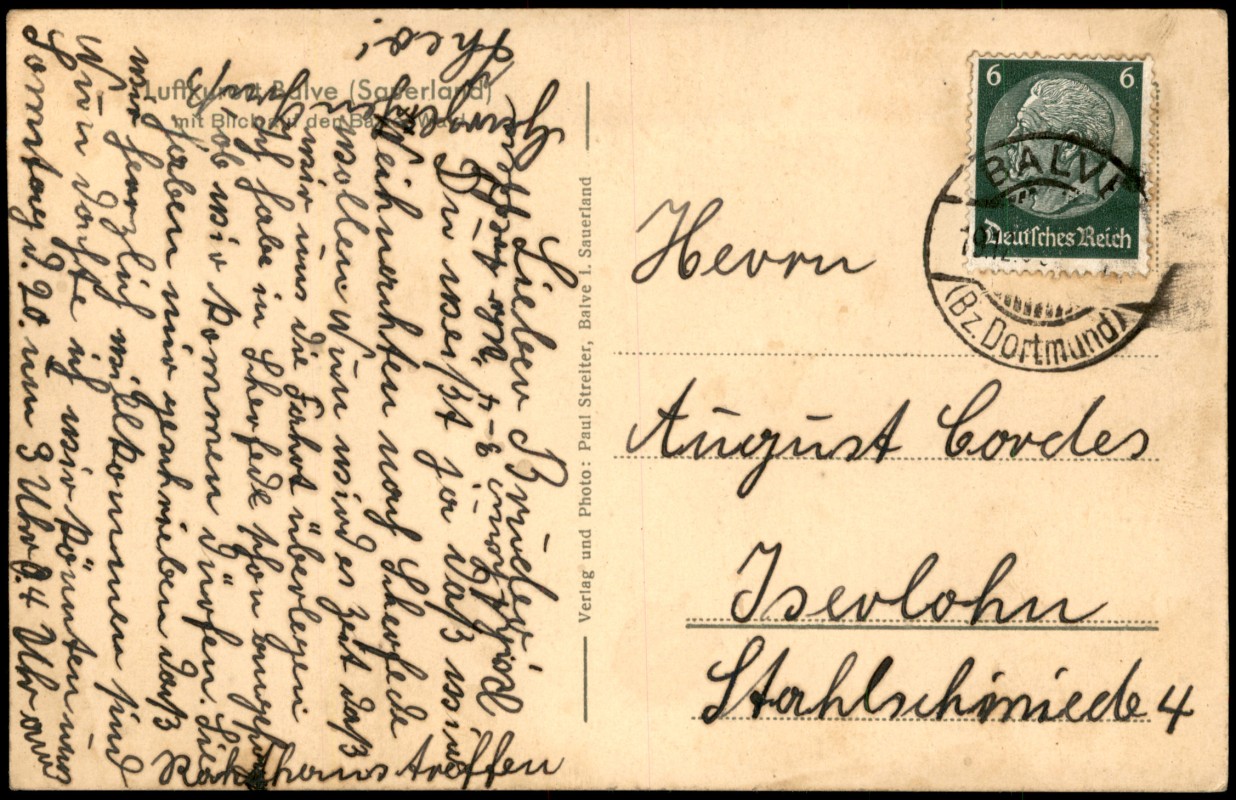 Luftkurort Balve (Sauerland)
mit Blick auf den Balver Wald
Lieber Bruder!
Du weißt ja daß wir
Weihnachten nach Scherfede
wollen. Nun wird es Zeit daß
wir uns die Fahrt überlegen
Ich habe in Scherfede schon
ob wir kommen dürfen. Sie
haben mir geschrieben daß
wir herzlich willkommen sind
Nun dachte ich wir könnten uns
Sonntag d. 20. um 3 Uhr o. 4 Uhr am
Rathhaus treffen
3-4
Theo!
Verlag und Photo: Paul Streiter, Balve i. Sauerland
6 6
Deutsches Reich
BALVE
(Bz. Dortmund)
Herrn
August Cordes
Iserlohn
Stahlschmiede 4